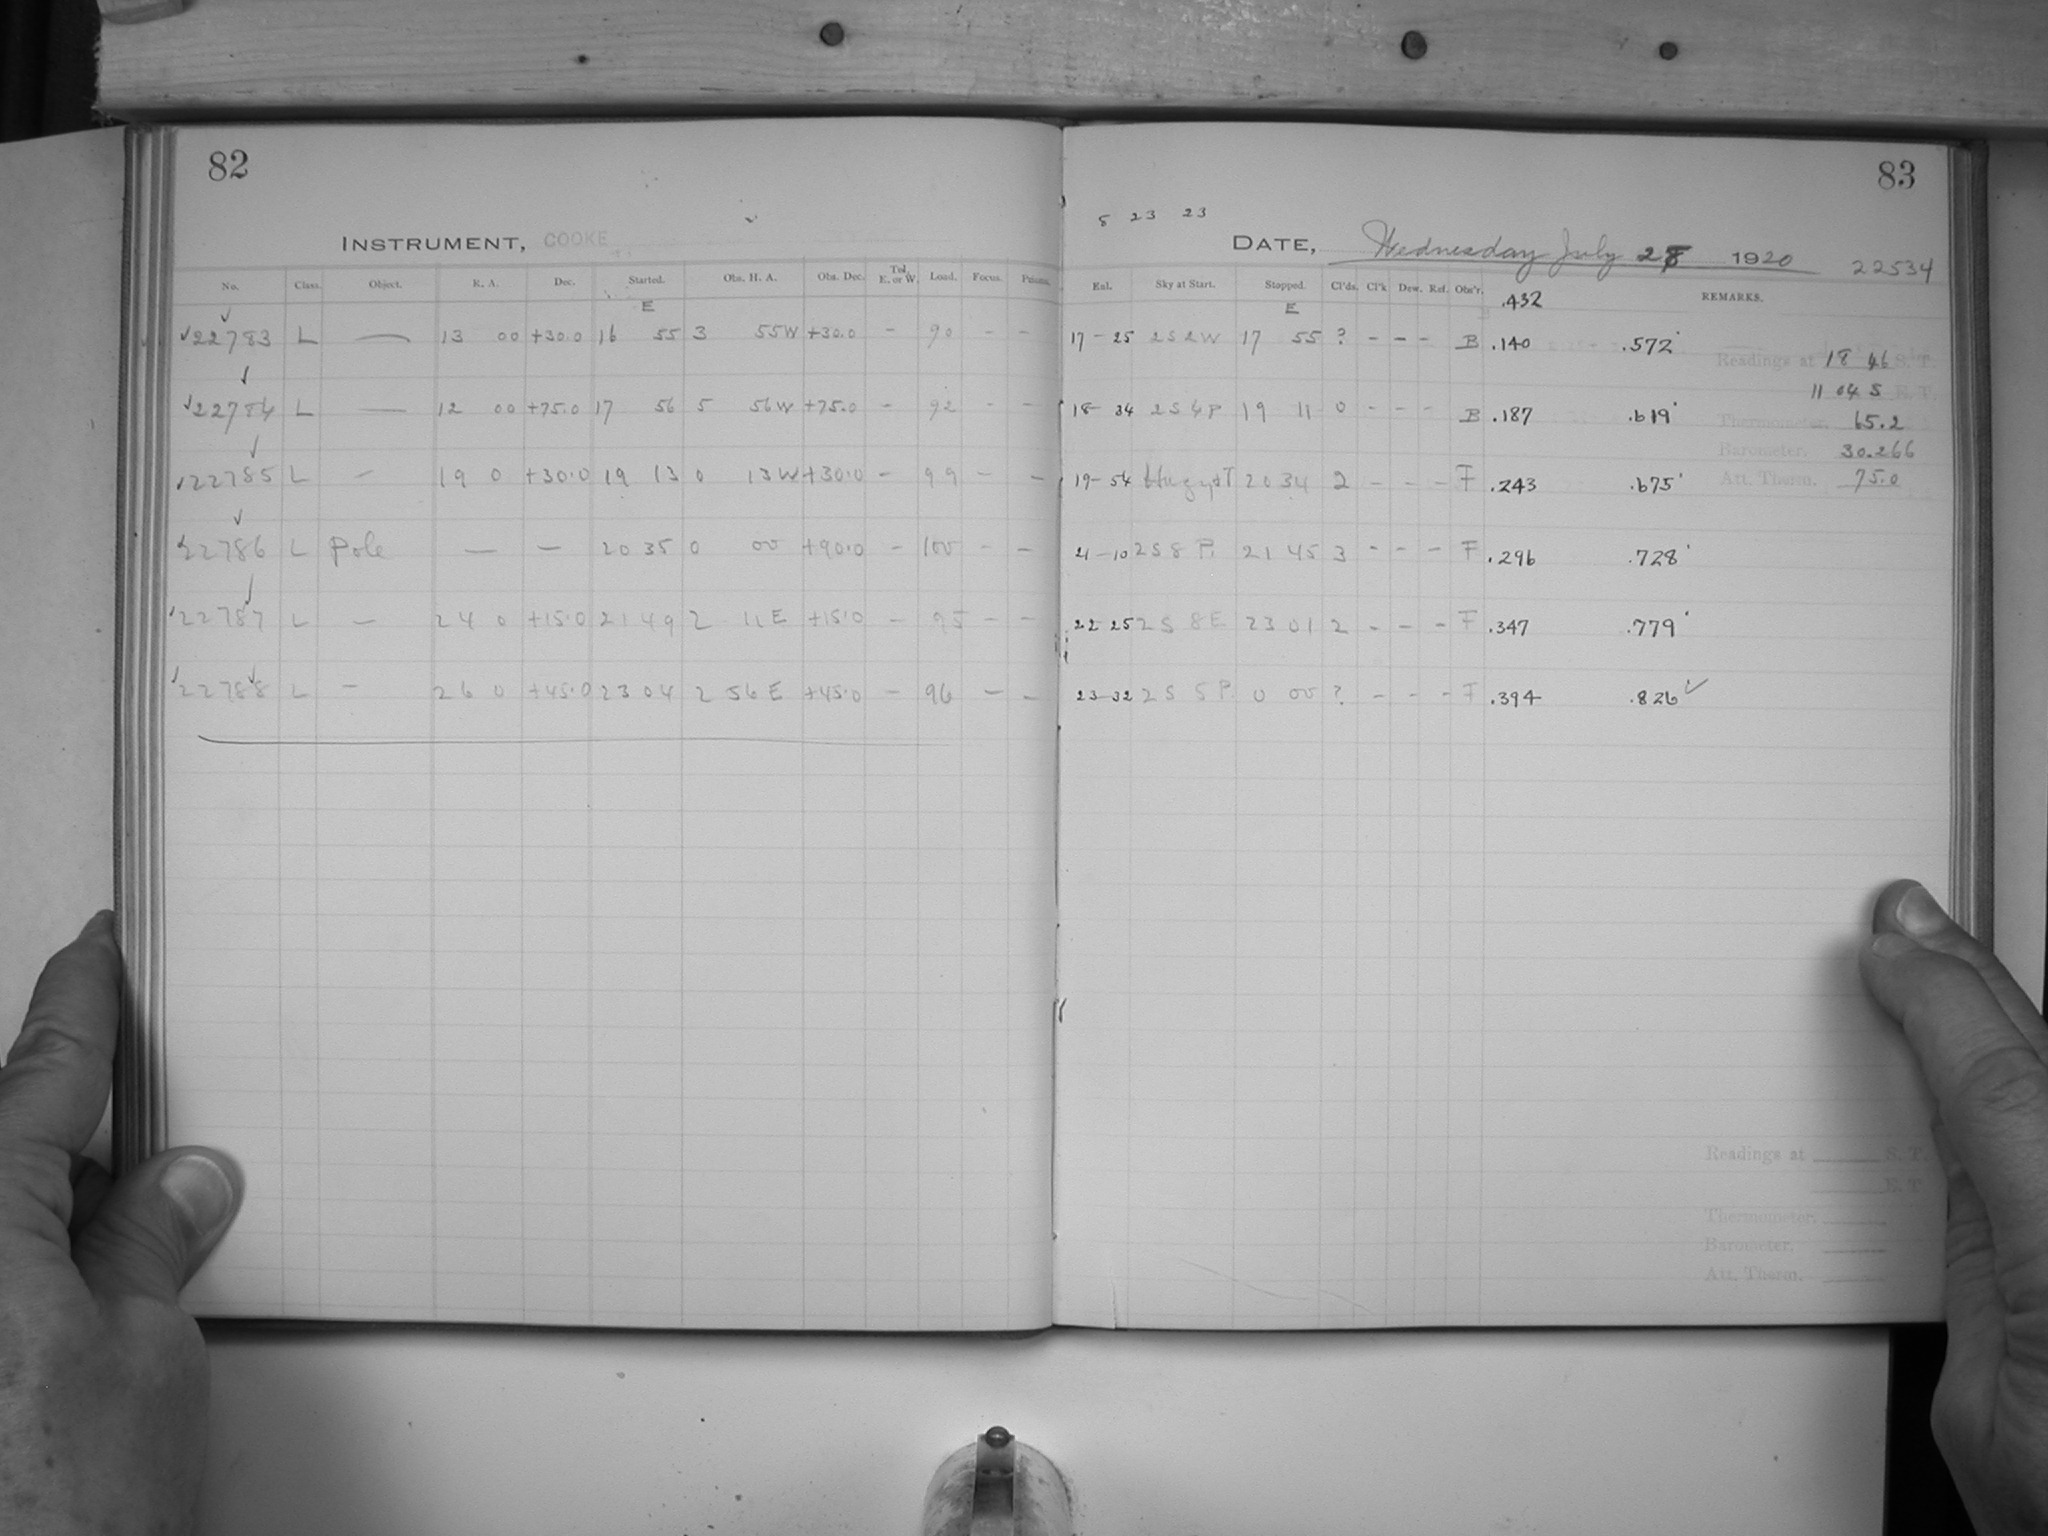 82
INSTRUMENT, COOKE
No. Class. Object. R. A. Dec. Started. Obs. H. A. Obs. Dec. Tel. E. or W. Load. Focus. Prisms.
E
22783 L — 13 00 +30.0 16 55 3 55W +30.0 - 90 - -
22784 L — 12 00 +75.0 17 56 5 56W +75.0 - 92 - -
22785 L — 19 0 +30.0 19 13 0 13W +30.0 - 99 - -
22786 L Pole — — 20 35 0 00 +90.0 - 100 - -
22787 L — 24 0 +15.0 21 49 2 11E +15.0 - 95 - -
22788 L — 26 0 +45.0 23 04 2 56E +45.0 - 96 - -
83
8 23 23
DATE, Wednesday July 28 1920 22534
Enl. Sky at Start. Stopped. Cl'ds. Cl'k Dew. Ref. Obs'r. .432 REMARKS.
E
17-25 2S2W 17 55 ? - - - B .140 .572
18-34 2S4P 19 11 0 - - - B .187 .619
19-54 20 34 2 - - - F .243 .675
21-10 2S8P. 21 45 3 - - - F .296 .728
22 25 2S 8E 23 01 2 - - - F .347 .779
23-32 2S 5P. 0 00 ? - - - F .394 .826
Readings at 18 46 S. T.
11 04 5 E. T.
Thermometer, 65.2
Barometer, 30.266
Att. Therm. 75.0
Readings at S. T.
E. T.
Thermometer,
Barometer,
Att. Therm.